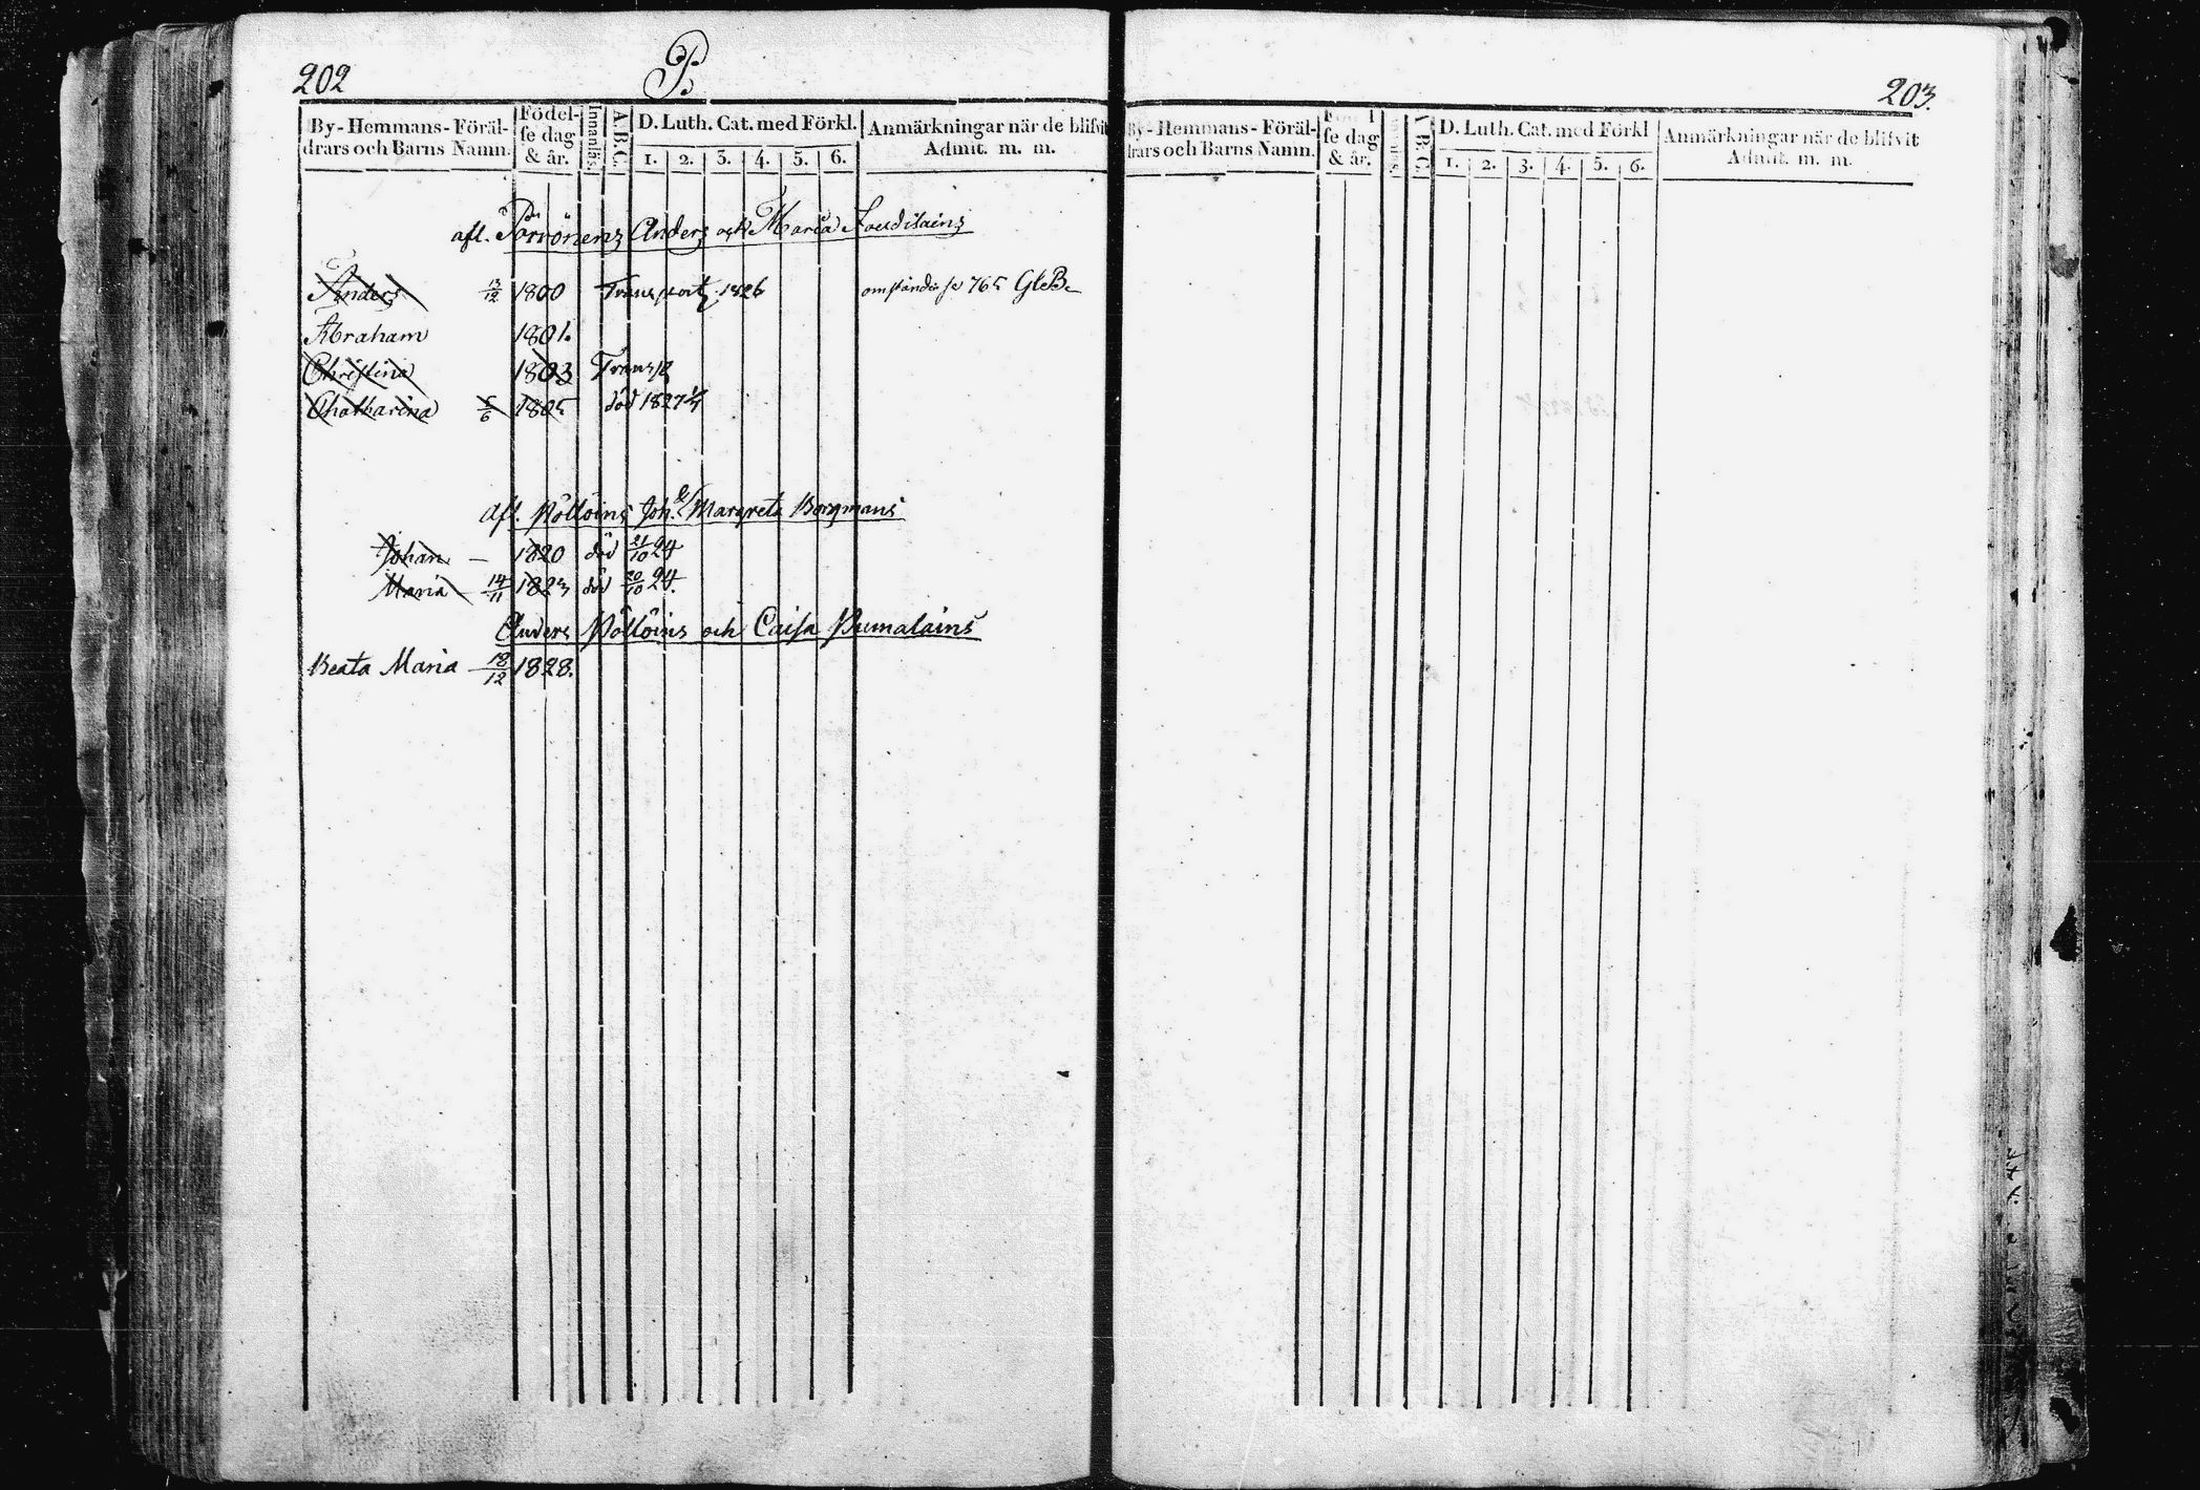 202
P.
By-Hemmans-Föräl-
drars och Barns Namn.
Födel-
se dag
& år.
Innanläs.
A.B.C.
D. Luth. Cat. med Förkl.
1. 2. 3. 4. 5. 6.
Anmärkningar när de blifvit
Admit. m. m.
afl. Anders och Maria
Anders 13/12 1800 Transport 1826 765
Abraham 1801.
Christina 1803 Transp
Chatharina 5/6 1805 död 1827
Afl. Pöllöins Joh. & Margreta Borgmans
Johan – 1820 död 21/10 24
Maria – 14/11 1823 död 20/10 24.
Anders Pöllöins och Caisa Pumalains
Beata Maria – 18/12 1828.
203.
By-Hemmans-Föräl-
drars och Barns Namn.
se dag
& år.
A.B.C.
D. Luth. Cat. med Förkl
1. 2. 3. 4. 5. 6.
Anmärkningar när de blifvit
Admit. m. m.